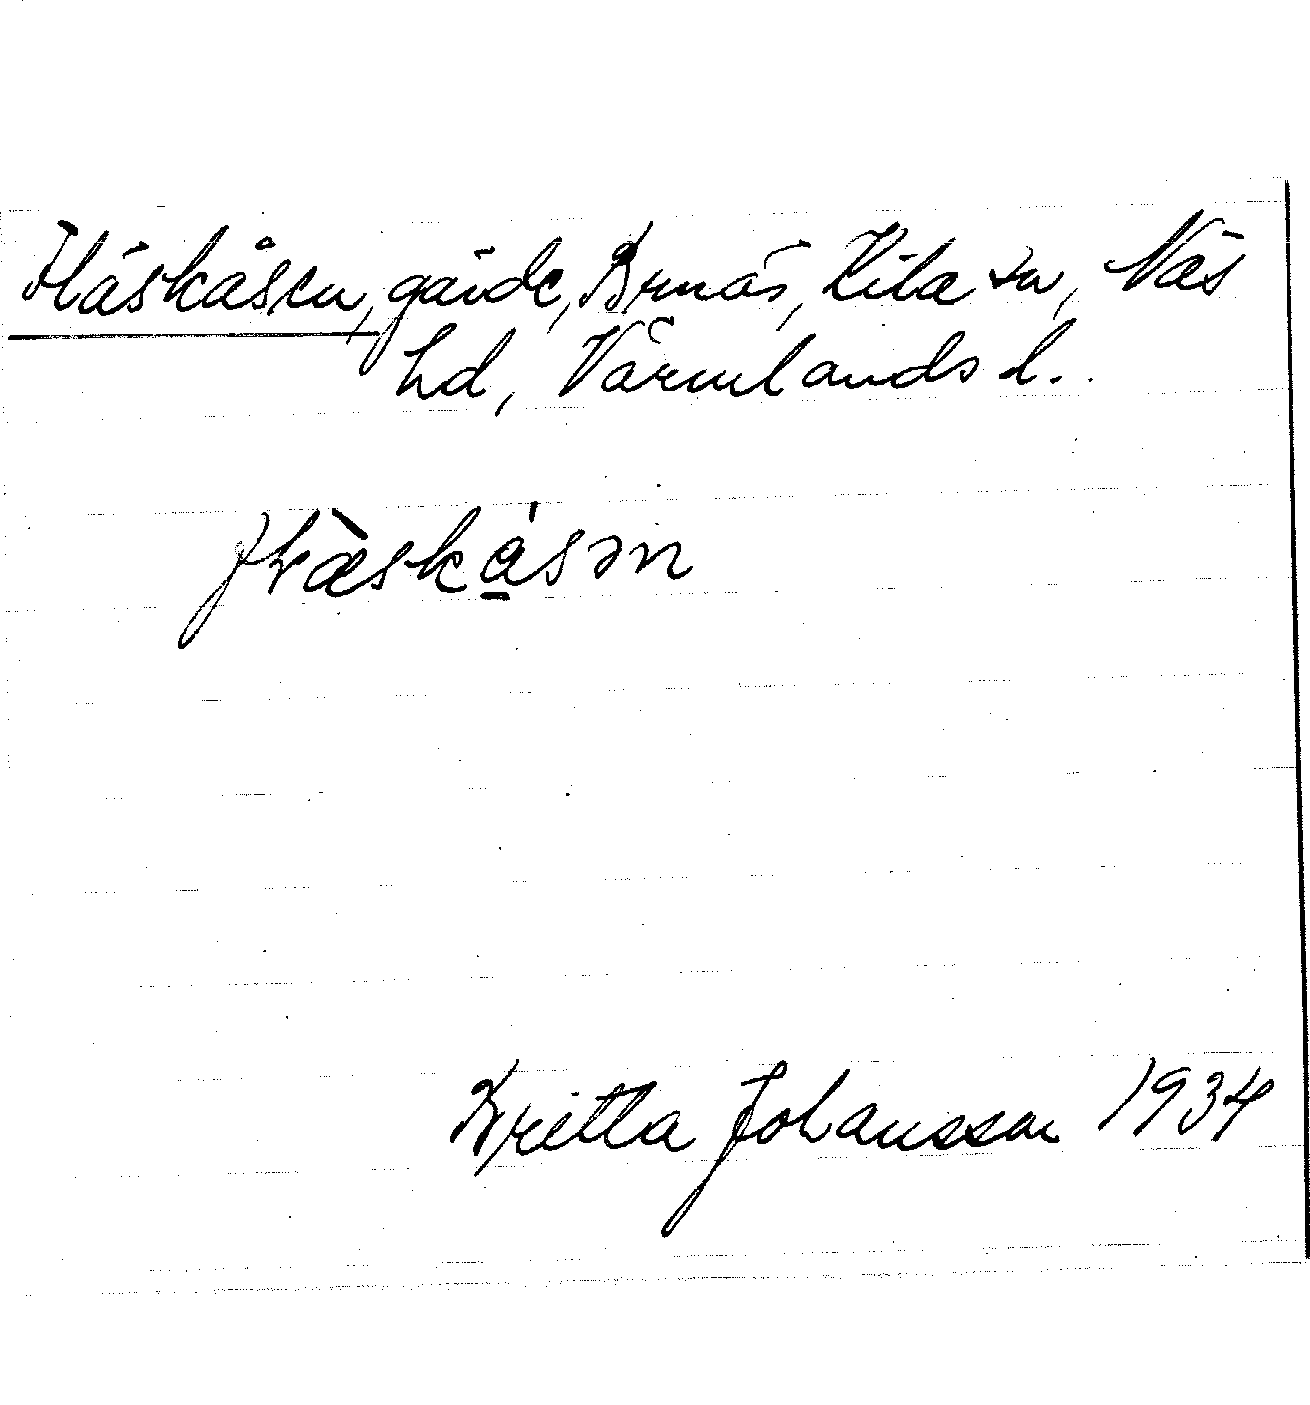 Fläskåsen, gärde, Brnäs, Kila sn, Näs
hd, Värmlands l.
flæ̀skåsən
Britta Johansson 1934